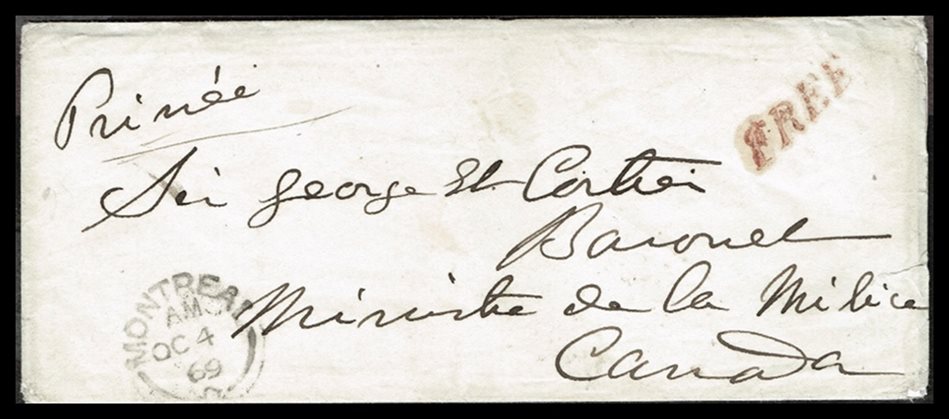 Privée
FREE
Sir George Et. Cartier
Baronet
Ministre de la Milice
Canada
MONTREAL
AM
OC 4
69